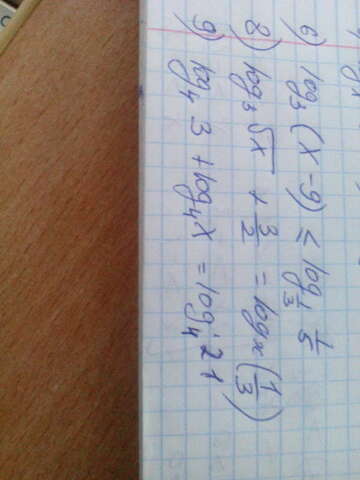 6) log₃ (x - 9) ≤ log_{1/3} 1/5
8) log₃ √x + 3/2 = logₓ (1/3)
9) log₄ 3 + log₄ x = log₄ 21